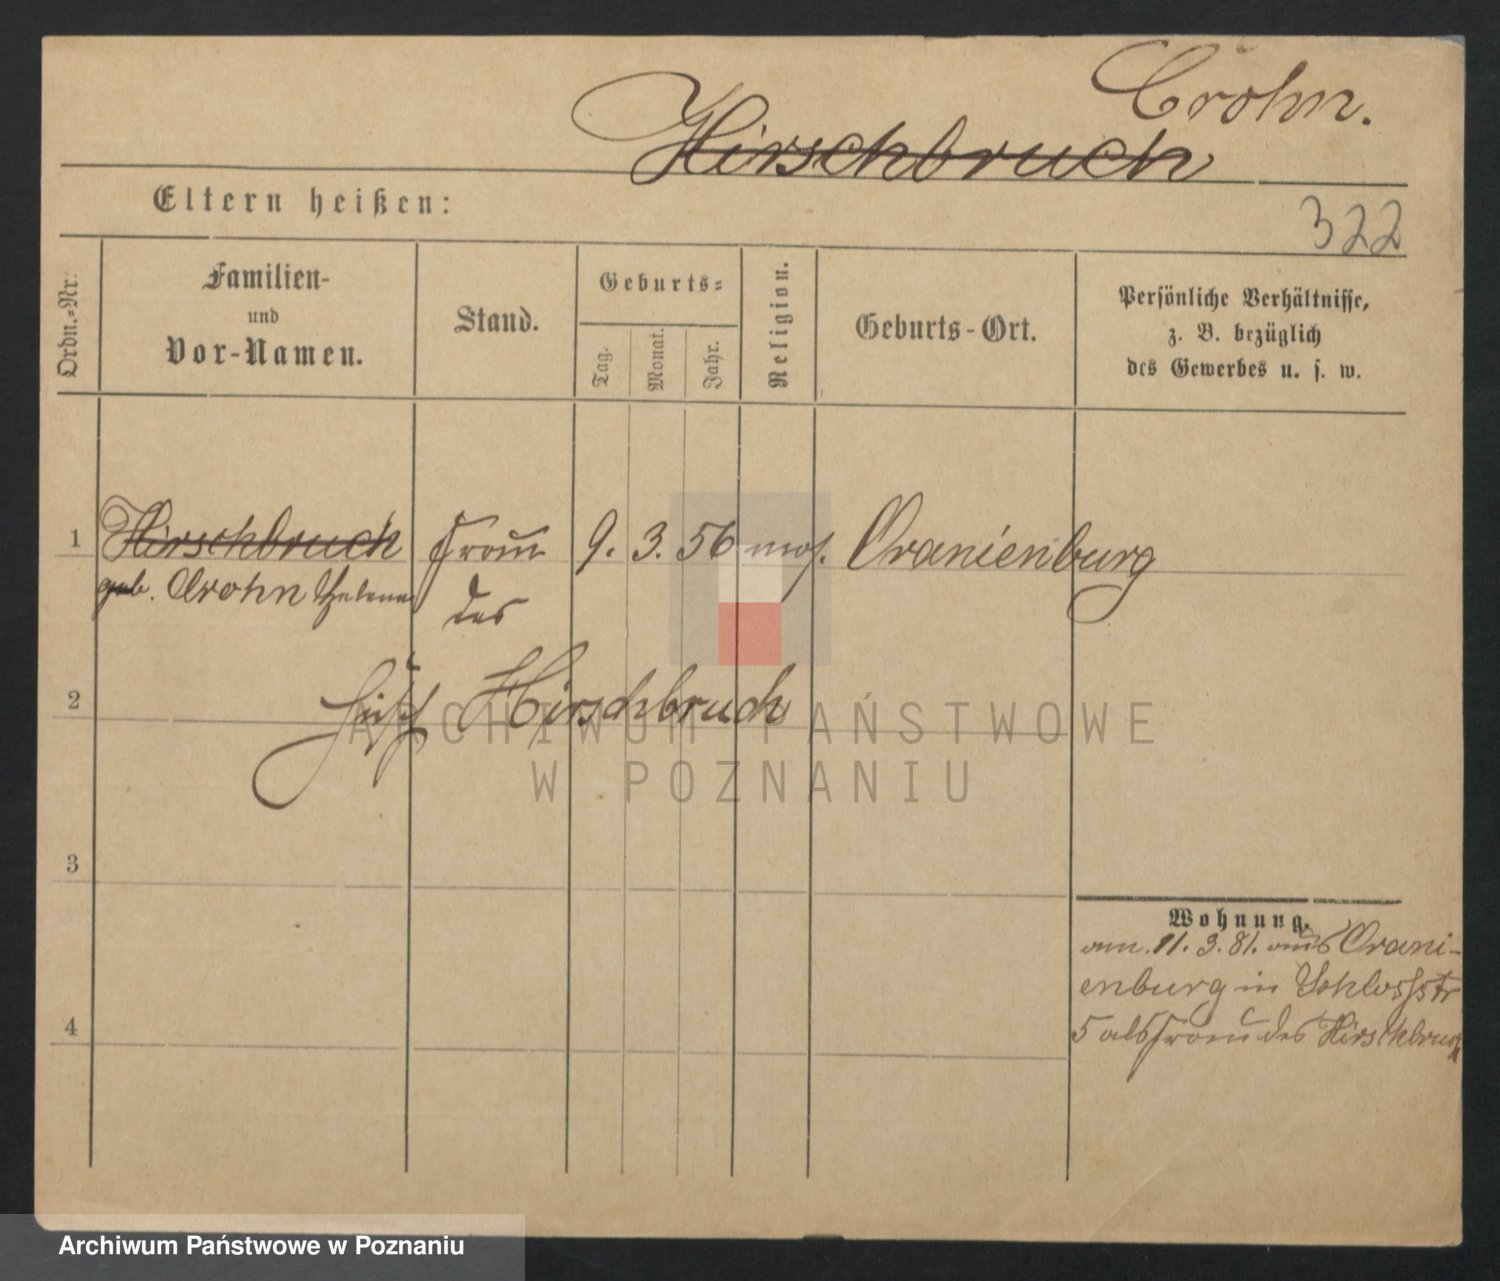 Crohn.
Hirschbruch
Eltern heißen:
322
Ordn.-Nr.
Familien-
und
Vor-Namen.
Stand.
Geburts-
Tag.
Monat.
Jahr.
Religion.
Geburts-Ort.
Persönliche Verhältnisse,
z. B. bezüglich
des Gewerbes u. s. w.
1 Hirschbruch Frau 9. 3. 56 mos. Oranienburg
geb. Crohn Helene des
2 Hirschbruch
3
4
Wohnung.
am 11. 3. 81. aus Orani-
enburg in Schlossstr
5 als Frau des Hirschbruch
ARCHIWUM PAŃSTWOWE
W POZNANIU
Archiwum Państwowe w Poznaniu